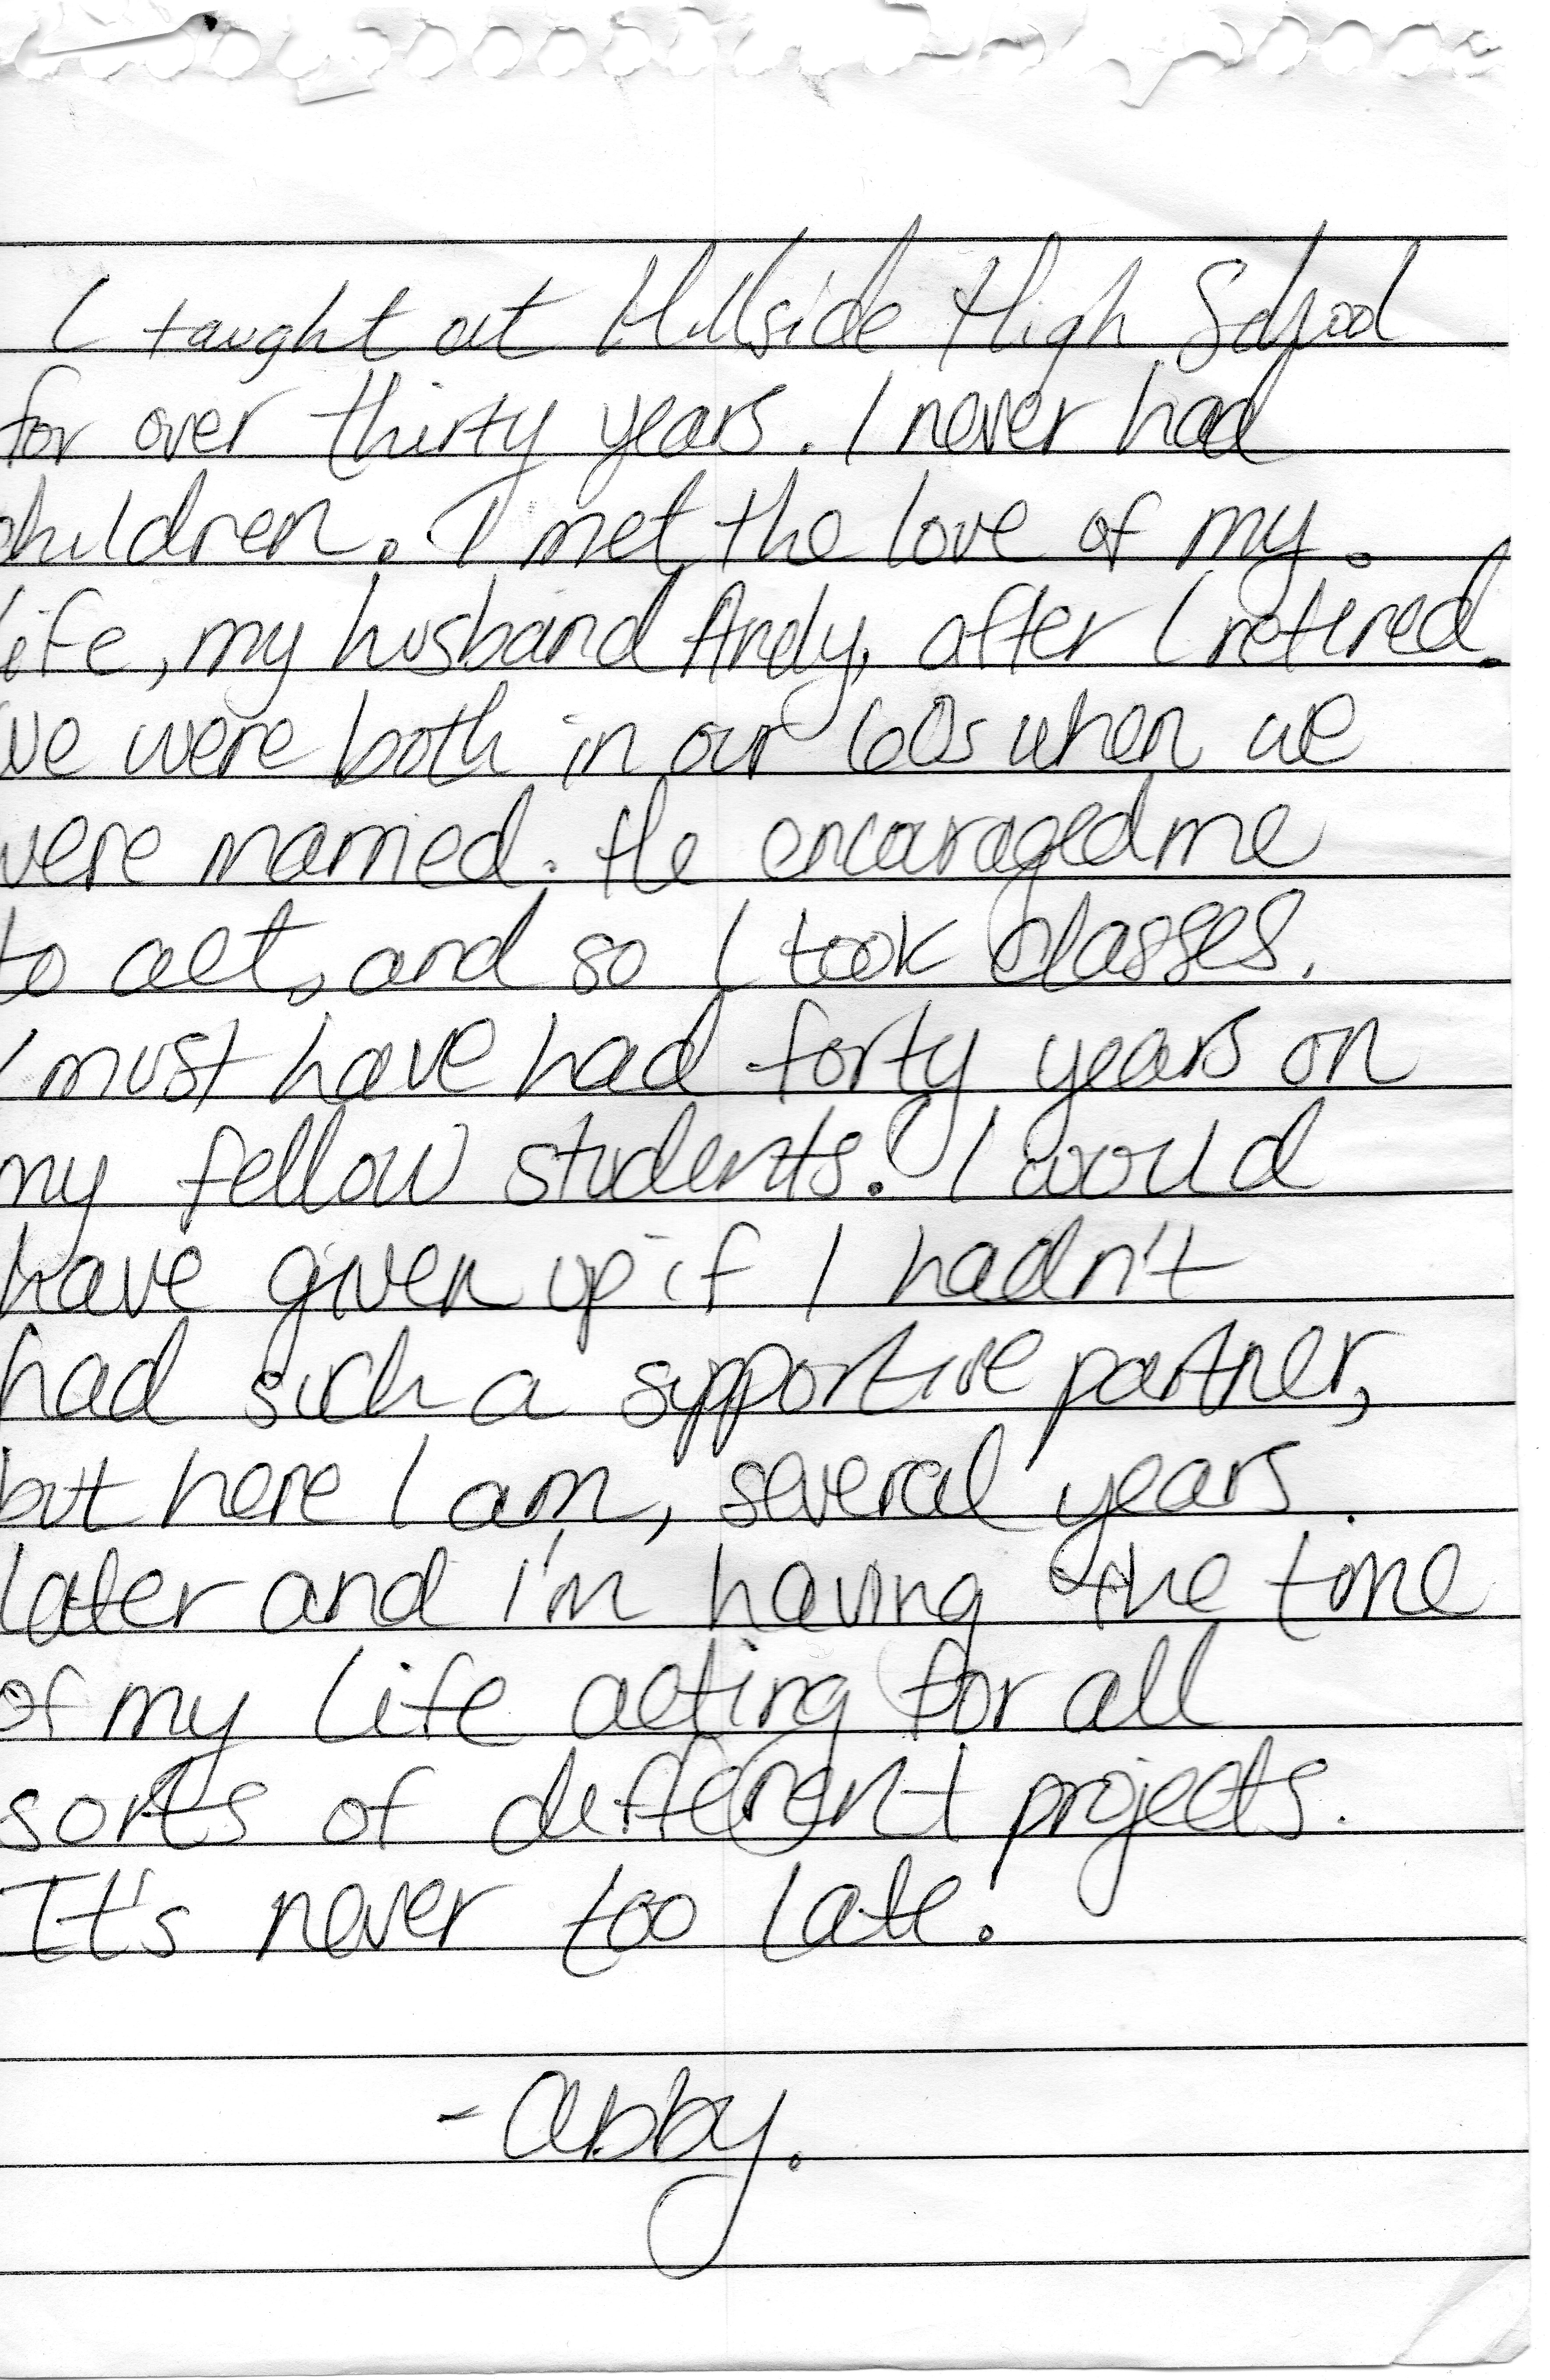 I taught at Hillside High School
for over thirty years. I never had
children. I met the love of my
life, my husband Andy, after I retired.
We were both in our 60s when we
were married. He encouraged me
to act, and so I took classes.
I must have had forty years on
my fellow students! I would
have given up if I hadn't
had such a supportive partner,
but here I am, several years
later and i'm having the time
of my life acting for all
sorts of different projects.
It's never too late.
- Abby.